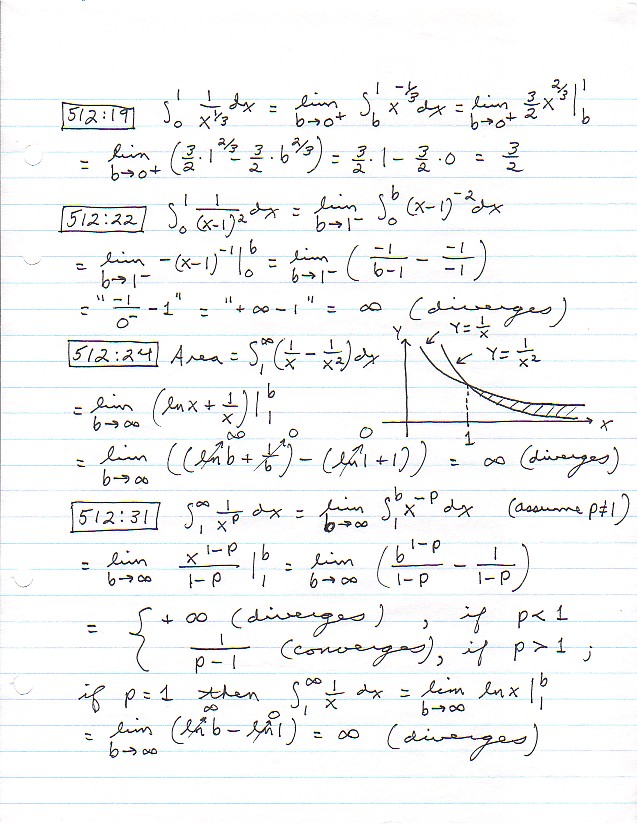 512:19 ∫₀¹ 1/x^(1/3) dx = lim b→0+ ∫_b^1 x^(-1/3) dx = lim b→0+ 3/2 x^(2/3) |_b^1
= lim b→0+ (3/2 · 1^(2/3) - 3/2 · b^(2/3)) = 3/2 · 1 - 3/2 · 0 = 3/2
512:22 ∫₀¹ 1/(x-1)² dx = lim b→1⁻ ∫₀^b (x-1)^(-2) dx
= lim b→1⁻ -(x-1)^(-1) |_0^b = lim b→1⁻ (-1/(b-1) - -1/-1)
= "-1/0⁻ - 1" = "+∞ - 1" = ∞ (diverges)
512:24 Area = ∫₁^∞ (1/x - 1/x²) dx Y Y = 1/x Y = 1/x²
= lim b→∞ (ln x + 1/x) |_1^b x 1
= lim b→∞ ((ln b + 1/b) - (ln 1 + 1)) = ∞ (diverges) ∞ 0 0
512:31 ∫₁^∞ 1/x^p dx = lim b→∞ ∫₁^b x^(-p) dx (assume p≠1)
= lim b→∞ x^(1-p)/(1-p) |_1^b = lim b→∞ (b^(1-p)/(1-p) - 1/(1-p))
= { +∞ (diverges), if p < 1
1/(p-1) (converges), if p > 1 ;
if p = 1 then ∫₁^∞ 1/x dx = lim b→∞ ln x |_1^b
= lim b→∞ (ln b - ln 1) = ∞ (diverges) ∞ 0